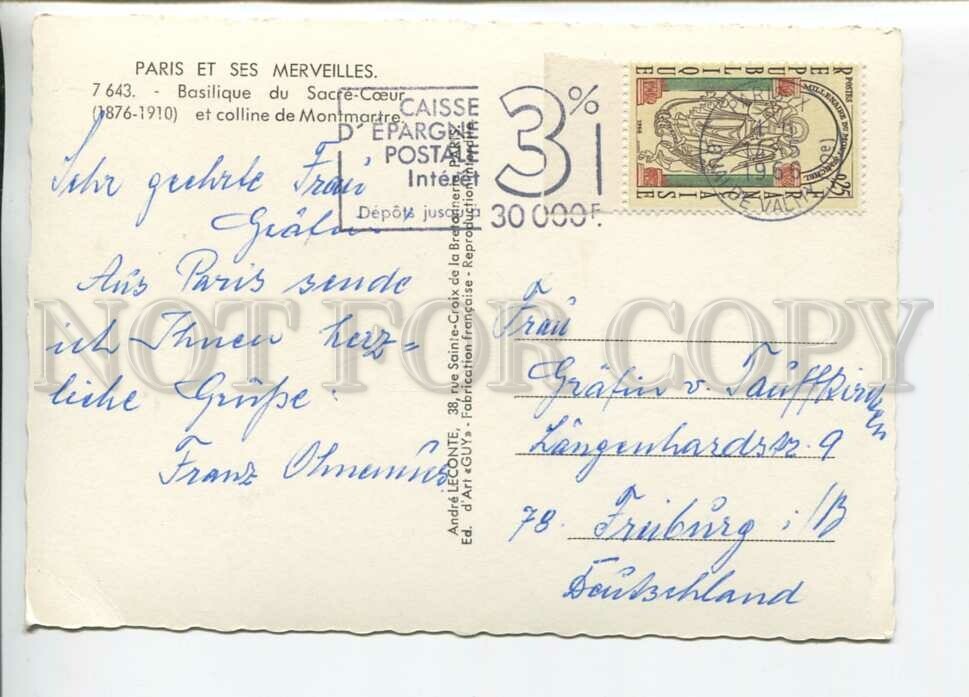 PARIS ET SES MERVEILLES.
7 643. - Basilique du Sacré-Cœur
(1876-1910) et colline de Montmartre.
CAISSE
D'ÉPARGNE
POSTALE
Intérêt
3%
Dépôts jusqu'à 30 000 F.
Sehr geehrte Frau
Gräfin
Aus Paris sende
ich Ihnen herz=
liche Grüße:
Franz Ohnemus
André LECONTE, 38, rue Sainte-Croix de la Bretonnerie, PARIS
Ed. d'Art «GUY» - Fabrication française - Reproduction interdite
REPUBLIQUE
FRANÇAISE
POSTES
MILLENAIRE DU MONT SAINT MICHEL
0,25
1966
1966
Frau
Gräfin v. Tauffkirchen
Längenhardstr. 9
78. Freiburg i/B
Deutschland
NOT FOR COPY